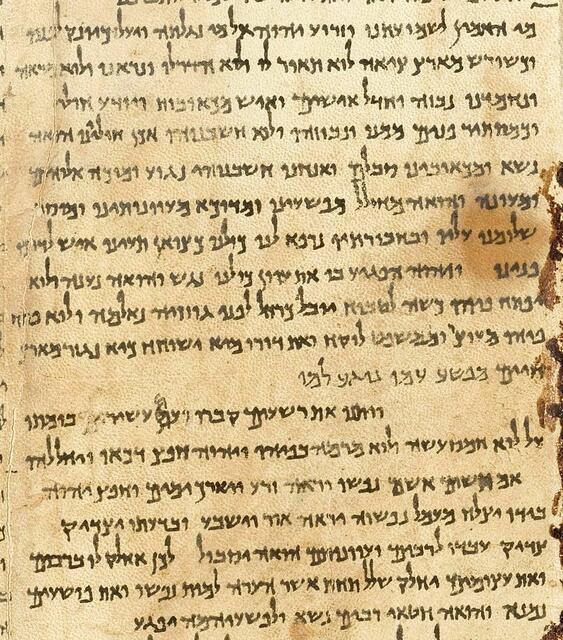 מי האמין לשמועתנו וזרוע יהוה אל מי נגלתה ויעל כיונק לפניו
וכשורש מארץ ציאה לוא תאור לו ולוא הדר לו ונראנו ולוא מראה
ונחמדנו נבזה וחדל אישים ואיש מכאובות ויודע חולי
וכמסתר פנים ממנו ונבוזהו ולוא חשבנוהו אכן חוליינו הואה
נשא ומכאובינו סבלם ואנחנו חשבנוהו נגוע ומוכה אלוהים
ומעונה והואה מחולל מפשעינו ומדוכא מעוונותינו ומוסר
שלומנו עליו ובחבורתיו נרפא לנו כולנו כצואן תעינו איש לדרכו
פנינו ויהוה הפגיע בו את עוון כולנו נגש והואה נענה ולוא
יפתח פיהו כשה לטבוח יובל כרחל לפני גוזזיה נאלמה ולוא פתח
פיהו מעוצר וממשפט לוקח ואת דורו מיא ישוחח כיא נגזר מארץ
חיים מפשע עמו נוגע למו
ויתנו את רשעים קברו ועם עשירים בומתו
על לוא חמס עשה ולוא מרמה בפיהו ויהוה חפץ דכאו ויחללהו
אם תשים אשם נפשו יראה זרע ויארך ימים וחפץ יהוה
בידו יצלח מעמל נפשוה יראה אור וישבע ובדעתו יצדיק
צדיק עבדו לרבים ועוונותם הואה יסבול לכן אחלק לו ברבים
ואת עצומים יחלק שלל תחת אשר הערה למות נפשו ואת פושעים
נמנא והואה חטאי רבים נשא ולפשעיהמה יפגע